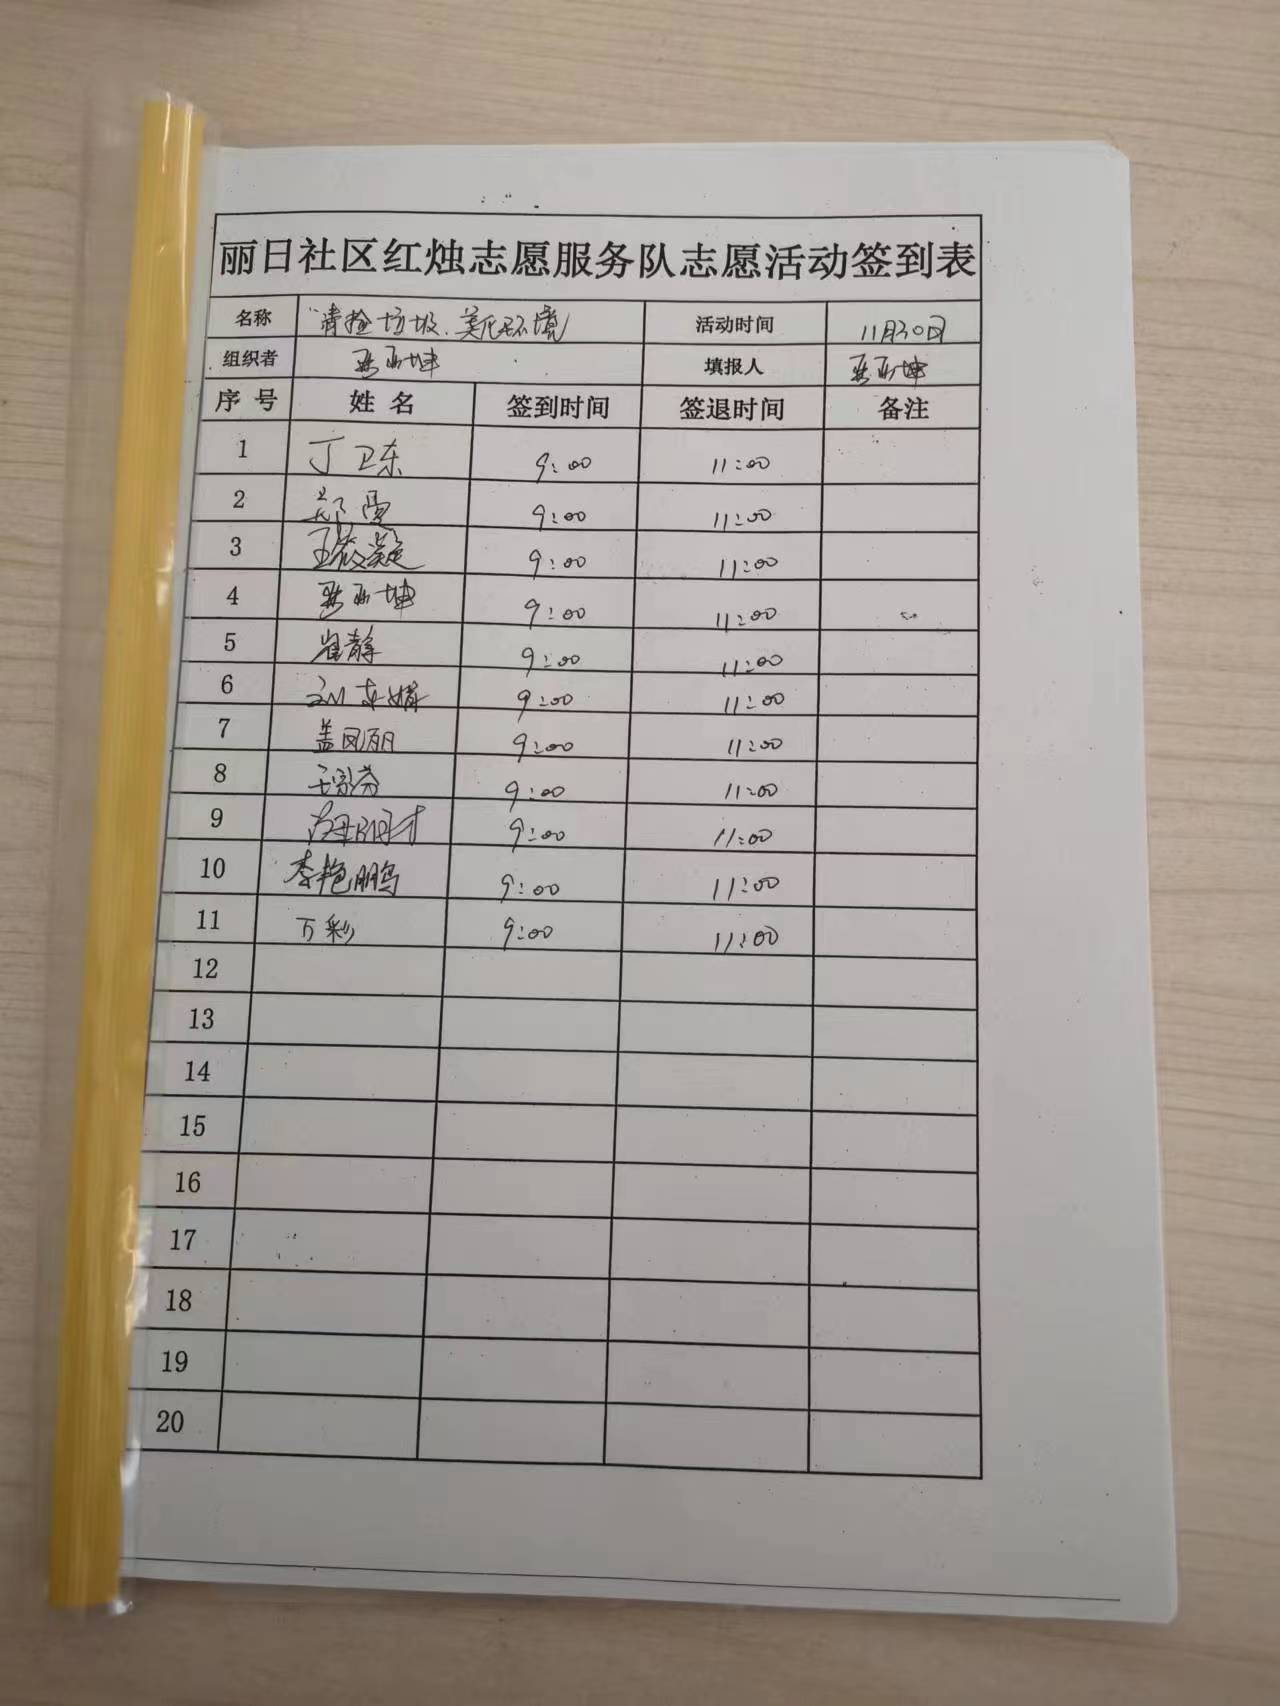 丽日社区红烛志愿服务队志愿活动签到表
名称 清捡垃圾、美化环境 活动时间 11月30日
组织者 亚坤 填报人 亚坤
序号 姓名 签到时间 签退时间 备注
1 丁卫东 9:00 11:00
2 郑雪 9:00 11:00
3 王筱凝 9:00 11:00
4 亚坤 9:00 11:00
5 崔静 9:00 11:00
6 刘 婧 9:00 11:00
7 盖凤丽 9:00 11:00
8 芬 9:00 11:00
9 9:00 11:00
10 李艳鹏 9:00 11:00
11 万彩 9:00 11:00
12
13
14
15
16
17
18
19
20